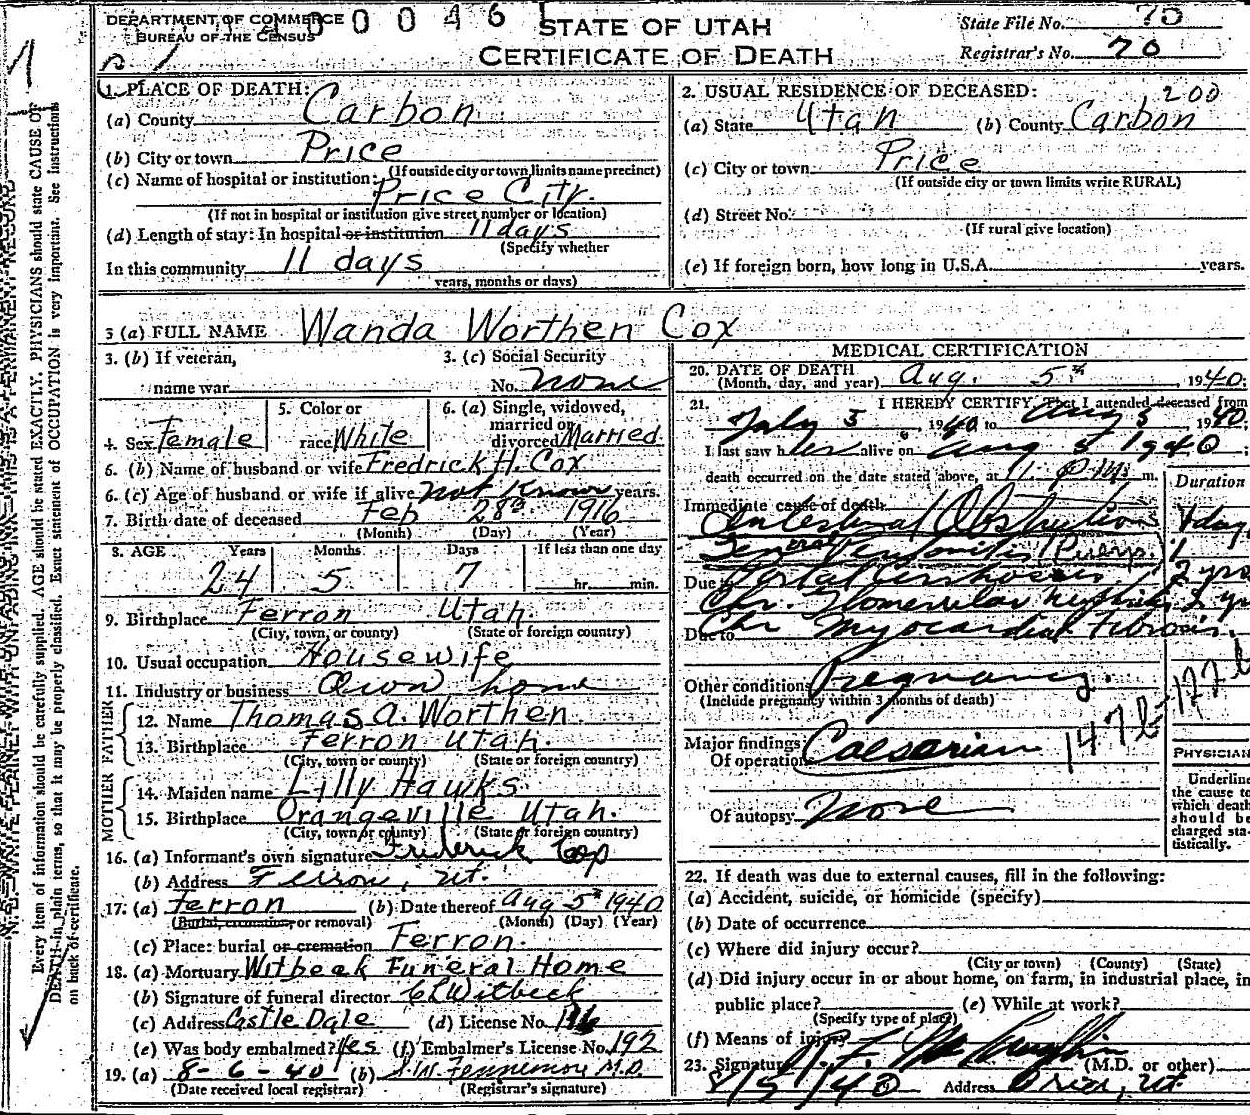 DEPARTMENT OF COMMERCE
BUREAU OF THE CENSUS
STATE OF UTAH
CERTIFICATE OF DEATH
State File No. 70
Registrar's No. 70
1. PLACE OF DEATH:
(a) County Carbon
(b) City or town Price
(If outside city or town limits name precinct)
(c) Name of hospital or institution:
Price City.
(If not in hospital or institution give street number or location)
(d) Length of stay: In hospital or institution 11 days
(Specify whether
In this community 11 days
years, months or days)
2. USUAL RESIDENCE OF DECEASED: 200
(a) State Utah (b) County Carbon
(c) City or town Price
(If outside city or town limits write RURAL)
(d) Street No.
(If rural give location)
(e) If foreign born, how long in U.S.A. years.
3 (a) FULL NAME Wanda Worthen Cox
3. (b) If veteran,
name war
3. (c) Social Security
No. none
4. Sex Female
5. Color or
race White
6. (a) Single, widowed,
married or
divorced Married
6. (b) Name of husband or wife Fredrick H. Cox
6. (c) Age of husband or wife if alive not Know years.
7. Birth date of deceased Feb 28th 1916
(Month) (Day) (Year)
8. AGE Years Months Days If less than one day
24 5 7 hr. min.
9. Birthplace Ferron Utah.
(City, town, or county) (State or foreign country)
10. Usual occupation Housewife
11. Industry or business Own home
FATHER
12. Name Thomas A. Worthen
13. Birthplace Ferron Utah.
(City, town or county) (State or foreign country)
MOTHER
14. Maiden name Lilly Hawks
15. Birthplace Orangeville Utah.
(City, town or county) (State or foreign country)
16. (a) Informant's own signature Frederick Cox
(b) Address Ferron, Ut.
17. (a) Ferron (b) Date thereof Aug 5th 1940
(Burial, cremation, or removal) (Month) (Day) (Year)
(c) Place: burial or cremation Ferron.
18. (a) Mortuary Witbeck Funeral Home
(b) Signature of funeral director C L Witbeck
(c) Address Castle Dale (d) License No.
(e) Was body embalmed? Yes (f) Embalmer's License No. 192
19. (a) 8-6-40 (b) Fennemore M.D.
(Date received local registrar) (Registrar's signature)
MEDICAL CERTIFICATION
20. DATE OF DEATH
(Month, day, and year) Aug. 5th, 1940;
21. I HEREBY CERTIFY, That I attended deceased from
July 3, 1940 to Aug 5 1940;
I last saw her alive on Aug 5 1940;
death occurred on the date stated above, at 11 P.M. m.
Duration
Immediate cause of death
Intestinal Obstruction
General Peritonitis (Puerp.)
Due to Portal Cirrhosis 2 yrs
Chr. Glomerular Nephritis 2 yr
Due to Chr Myocardial Fibrosis.
Other conditions Pregnancy.
(Include pregnancy within 3 months of death)
Major findings
Of operation Caesarian
Of autopsy None
PHYSICIAN
Underline
the cause to
which death
should be
charged sta-
tistically.
22. If death was due to external causes, fill in the following:
(a) Accident, suicide, or homicide (specify)
(b) Date of occurrence
(c) Where did injury occur?
(City or town) (County) (State)
(d) Did injury occur in or about home, on farm, in industrial place, in
public place? (e) While at work?
(Specify type of place)
(f) Means of injury
23. Signature (M.D. or other)
8/5/40 Address Price, Ut.
Every item of information should be carefully supplied. AGE should be stated EXACTLY. PHYSICIANS should state CAUSE OF
DEATH in plain terms, so that it may be properly classified. Exact statement of OCCUPATION is very important. See instructions
on back of certificate.